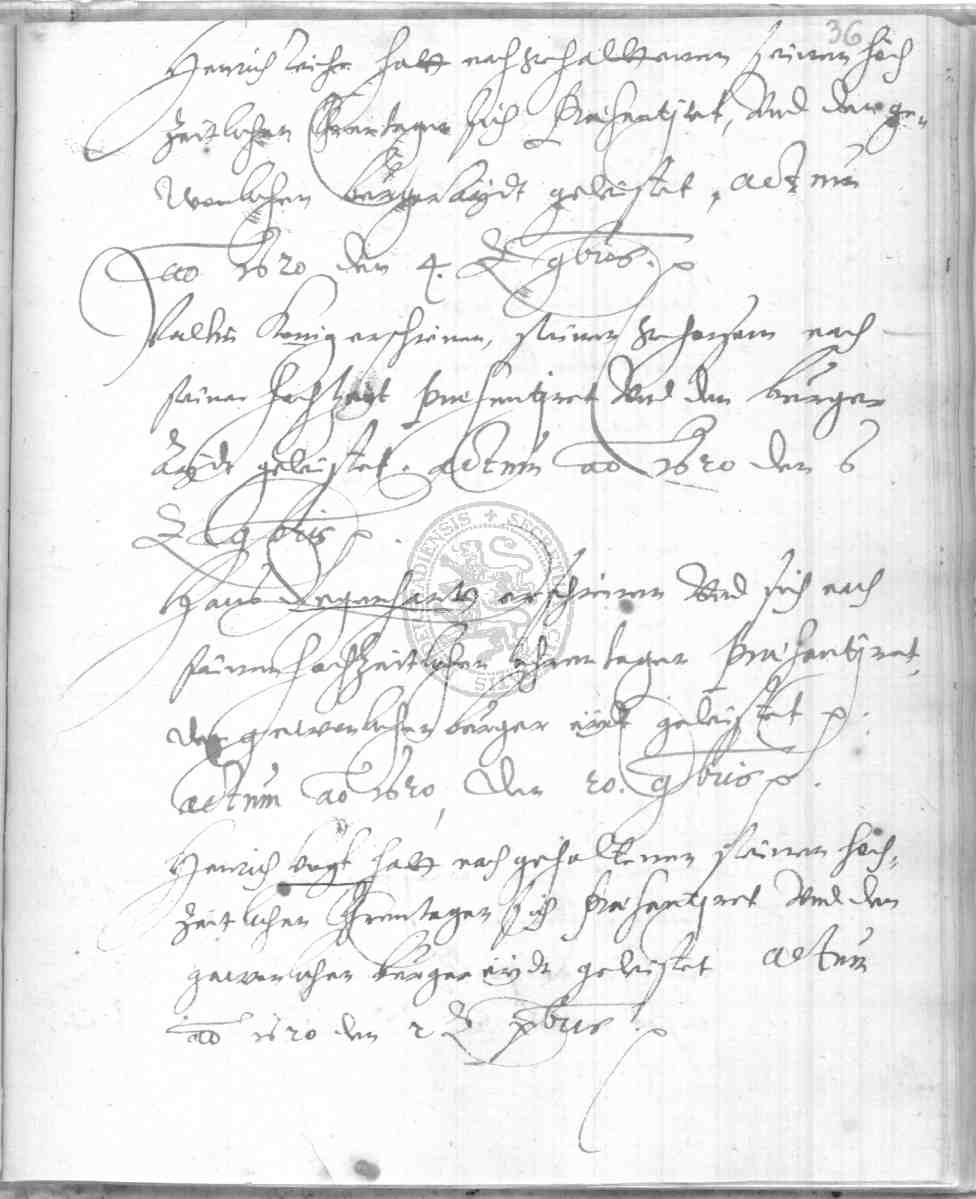 36
Henrich Leiche hatt nach gehalttenen seinen hoch
zeitlichen Ehrentagen sich Præsentiret, Vnd den ge-
wonlichen bürger Aydt geleistet, actum
ao 1620 den 4. 9bris.
Valtin König erschienen, seinen gehorsam nach
seiner hochzeit præsentiret Vnd den bürger
Aydt geleistet. actum ao 1620 den 6
9bris
Hans Degenhartt erschienen Vnd sich nach
seinen hochzeitlichen ehrentagen præsentiret,
den gewonlichen bürger eydt geleistet
actum ao 1620, den 20. 9bris
Henrich Vogt hatt nach gehaltenen seinen hoch-
zeitlichen Ehrentagen sich præsentiret Vnd den
gewonlichen bürger eydt geleistet actum
ao 1620 den 2 xbris